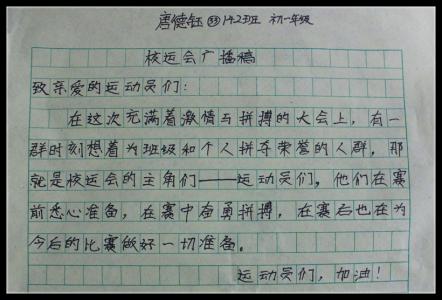 唐德钰 142班 初一年级
校运会广播稿
致亲爱的运动员们:
在这次充满着激情与拼搏的大会上,有一
群时刻想着为班级和个人拼夺荣誉的人群,那
就是校运会的主角们——运动员们,他们在赛
前悉心准备,在赛中奋勇拼搏,在赛后也在为
今后的比赛做好一切准备。
运动员们,加油!